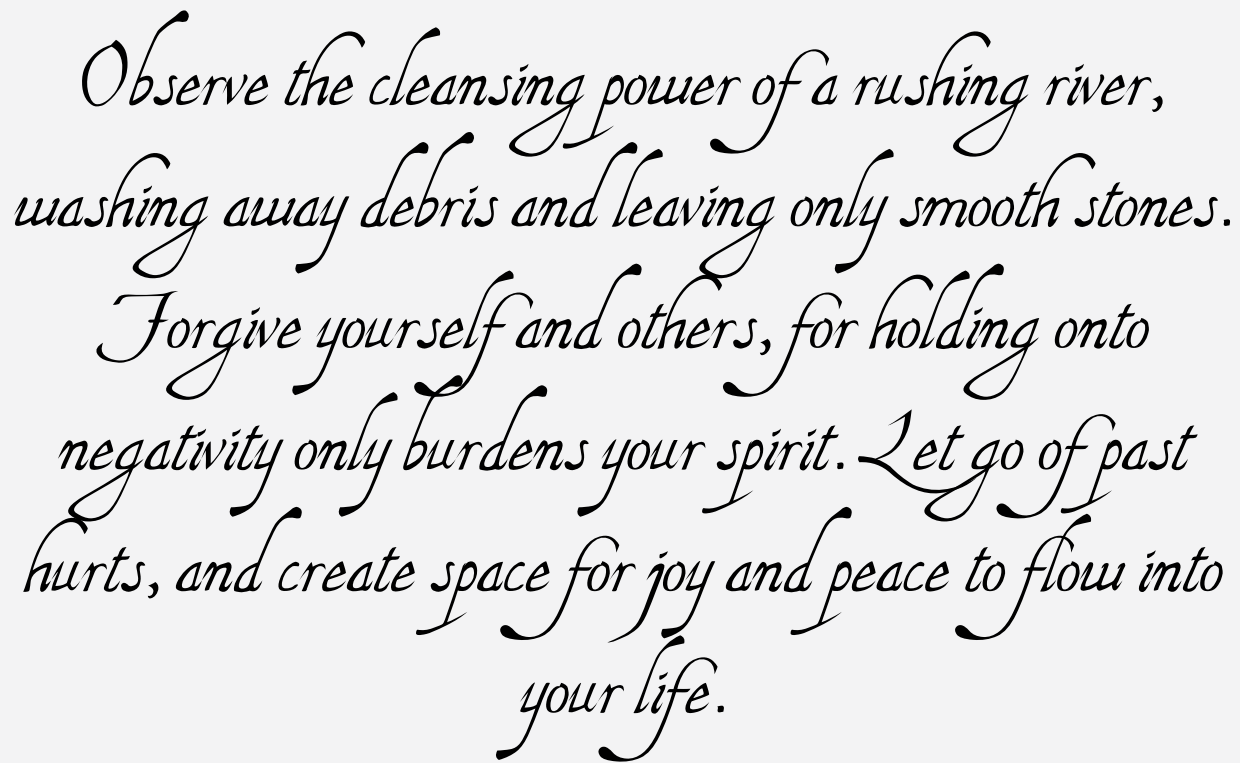 Observe the cleansing power of a rushing river,
washing away debris and leaving only smooth stones.
Forgive yourself and others, for holding onto
negativity only burdens your spirit. Let go of past
hurts, and create space for joy and peace to flow into
your life.